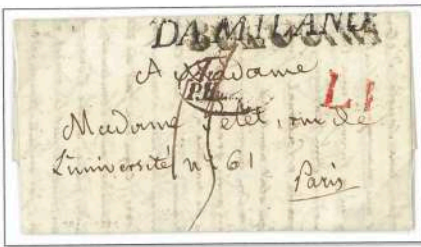 DA MILANO
BOLOGNA
A Madame
P.P.
L.I
Madame Petet, rue de
L'université n° 61
Paris